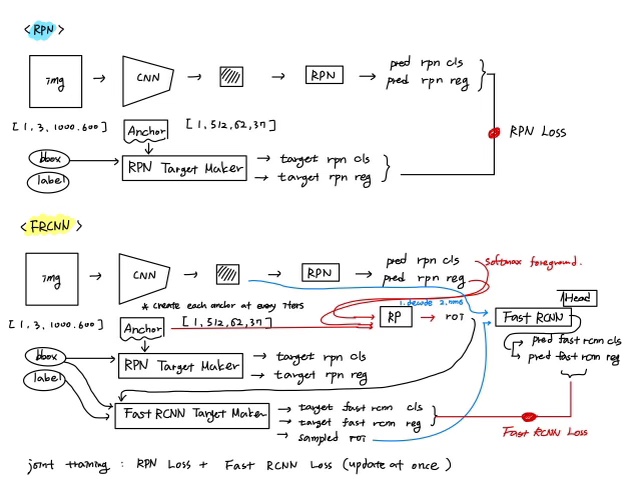 < RPN >
img → CNN → → RPN → pred rpn cls
pred rpn reg
[1, 3, 1000.600]
Anchor
[1, 512, 62, 37]
RPN Loss
bbox
label
RPN Target Maker
→ target rpn cls
→ target rpn reg
< FRCNN >
img → CNN → → RPN → pred rpn cls
pred rpn reg
softmax foreground.
* create each anchor at every iters
1. decode 2. nms
[1, 3, 1000.600]
Anchor
[1, 512, 62, 37]
RP → roi
Fast RCNN
Head
pred fast rcnn cls
pred fast rcnn reg
bbox
label
RPN Target Maker
→ target rpn cls
→ target rpn reg
Fast RCNN Target Maker
→ target fast rcnn cls
→ target fast rcnn reg
→ sampled roi
Fast RCNN Loss
joint training : RPN Loss + Fast RCNN Loss (update at once)